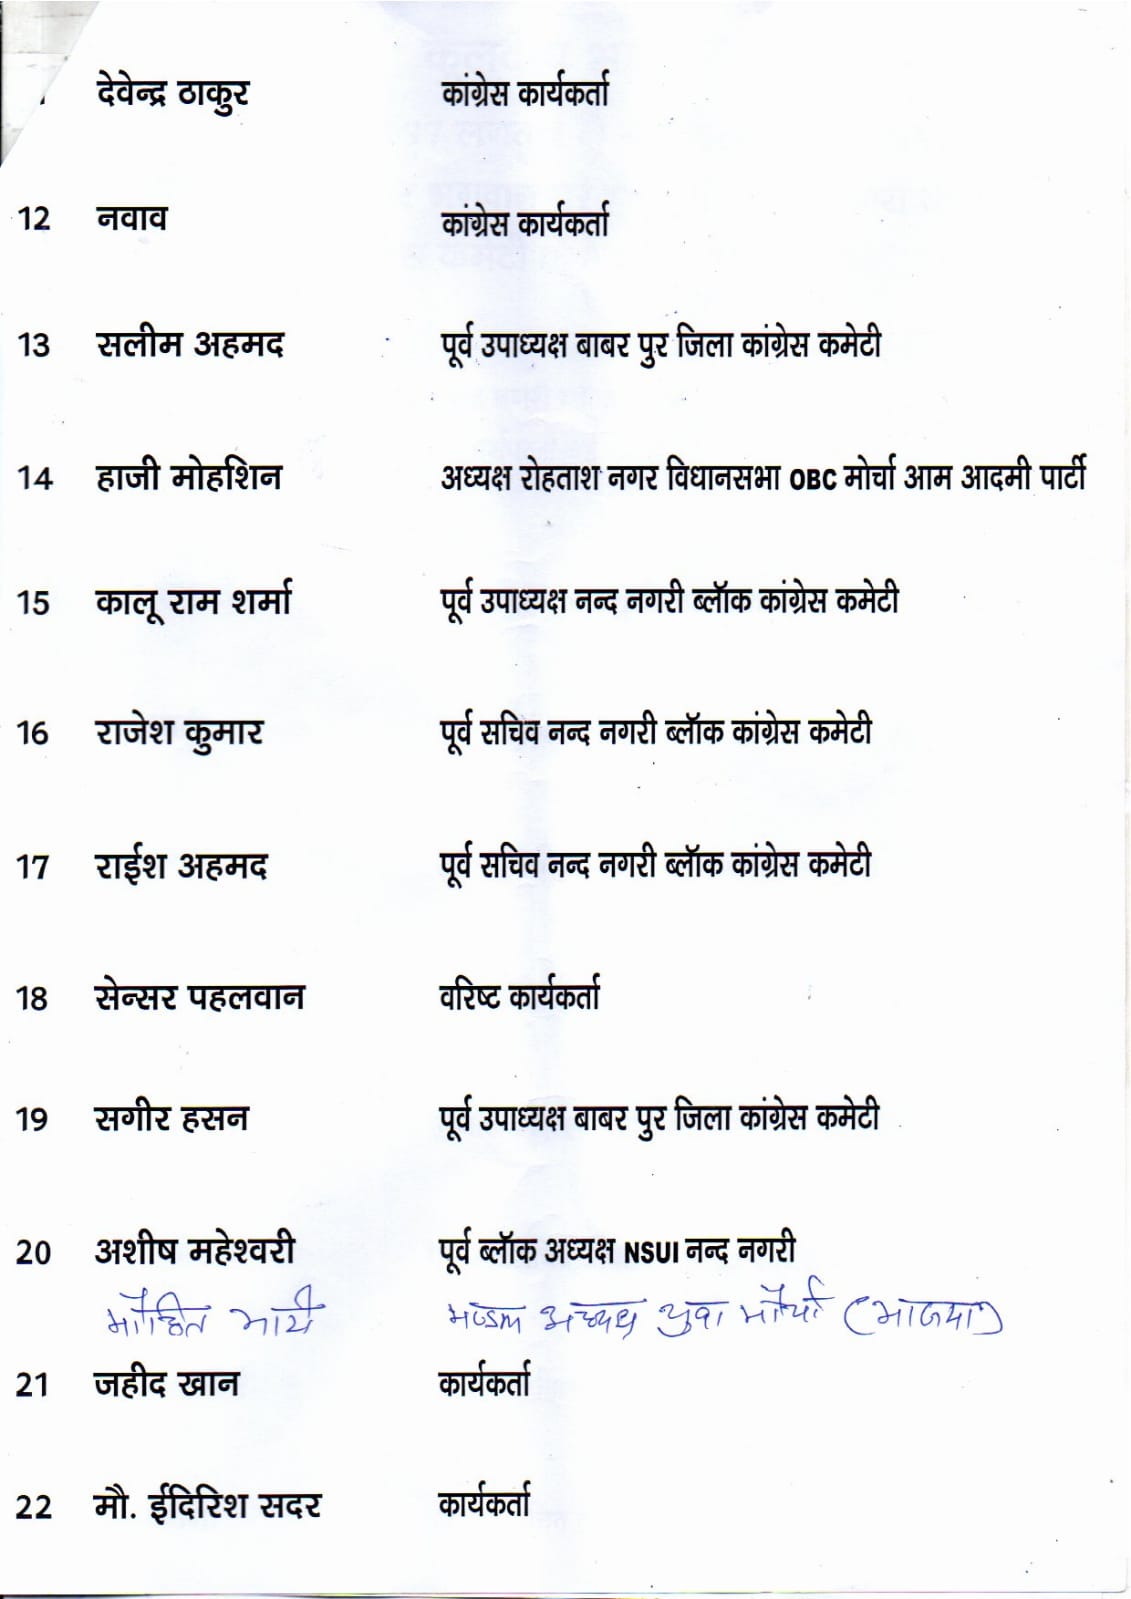 देवेन्द्र ठाकुर कांग्रेस कार्यकर्ता
12 नवाव कांग्रेस कार्यकर्ता
13 सलीम अहमद पूर्व उपाध्यक्ष बाबर पुर जिला कांग्रेस कमेटी
14 हाजी मोहशिन अध्यक्ष रोहताश नगर विधानसभा OBC मोर्चा आम आदमी पार्टी
15 कालू राम शर्मा पूर्व उपाध्यक्ष नन्द नगरी ब्लॉक कांग्रेस कमेटी
16 राजेश कुमार पूर्व सचिव नन्द नगरी ब्लॉक कांग्रेस कमेटी
17 राईश अहमद पूर्व सचिव नन्द नगरी ब्लॉक कांग्रेस कमेटी
18 सेन्सर पहलवान वरिष्ट कार्यकर्ता
19 सगीर हसन पूर्व उपाध्यक्ष बाबर पुर जिला कांग्रेस कमेटी
20 अशीष महेश्वरी पूर्व ब्लॉक अध्यक्ष NSUI नन्द नगरी
मण्डल अध्यक्ष युवा मोर्चा (भाजपा)
21 जहीद खान कार्यकर्ता
22 मौ. ईदिरिश सदर कार्यकर्ता